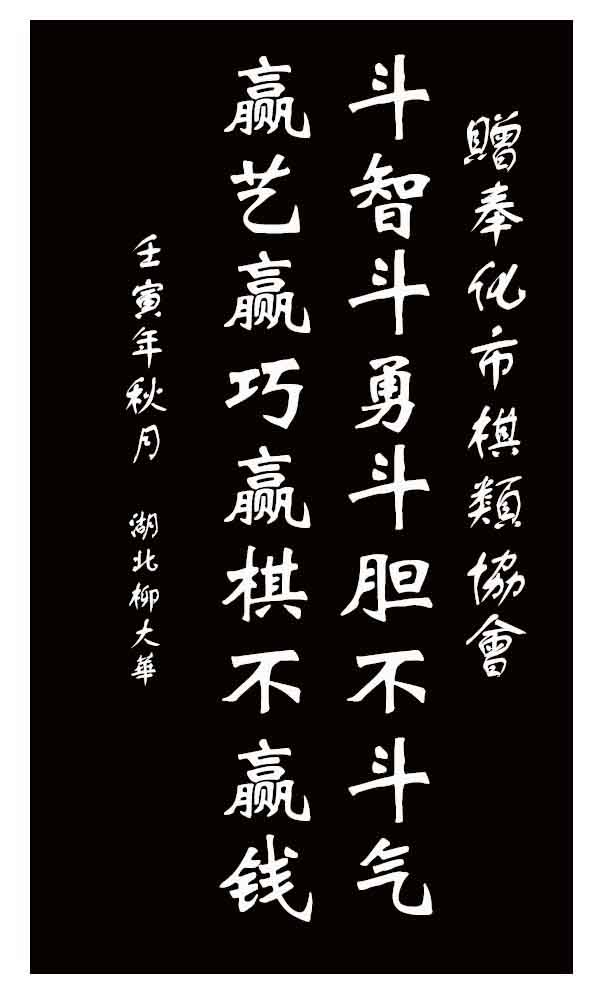 贈奉化市棋類協會
斗智斗勇斗胆不斗气
赢艺赢巧赢棋不赢钱
壬寅年秋月 湖北柳大華